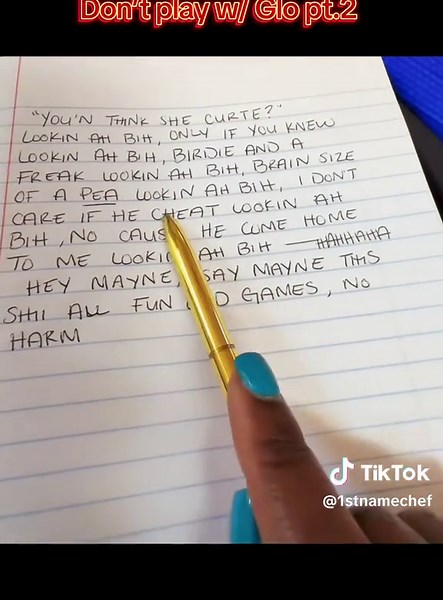 Don't play w/ Glo pt.2
"YOU'N THINK SHE CURTE?"
LOOKIN AH BIH, ONLY IF YOU KNEW
LOOKIN AH BIH, BIRDIE AND A
FREAK LOOKIN AH BIH, BRAIN SIZE
OF A PEA LOOKIN AH BIH, I DON'T
CARE IF HE CHEAT LOOKIN AH
BIH, NO CAUS HE COME HOME
TO ME LOOKIN AH BIH — HAHHAHA
HEY MAYNE, SAY MAYNE THIS
SHII ALL FUN GAMES, NO
HARM
TikTok
@1stnamechef